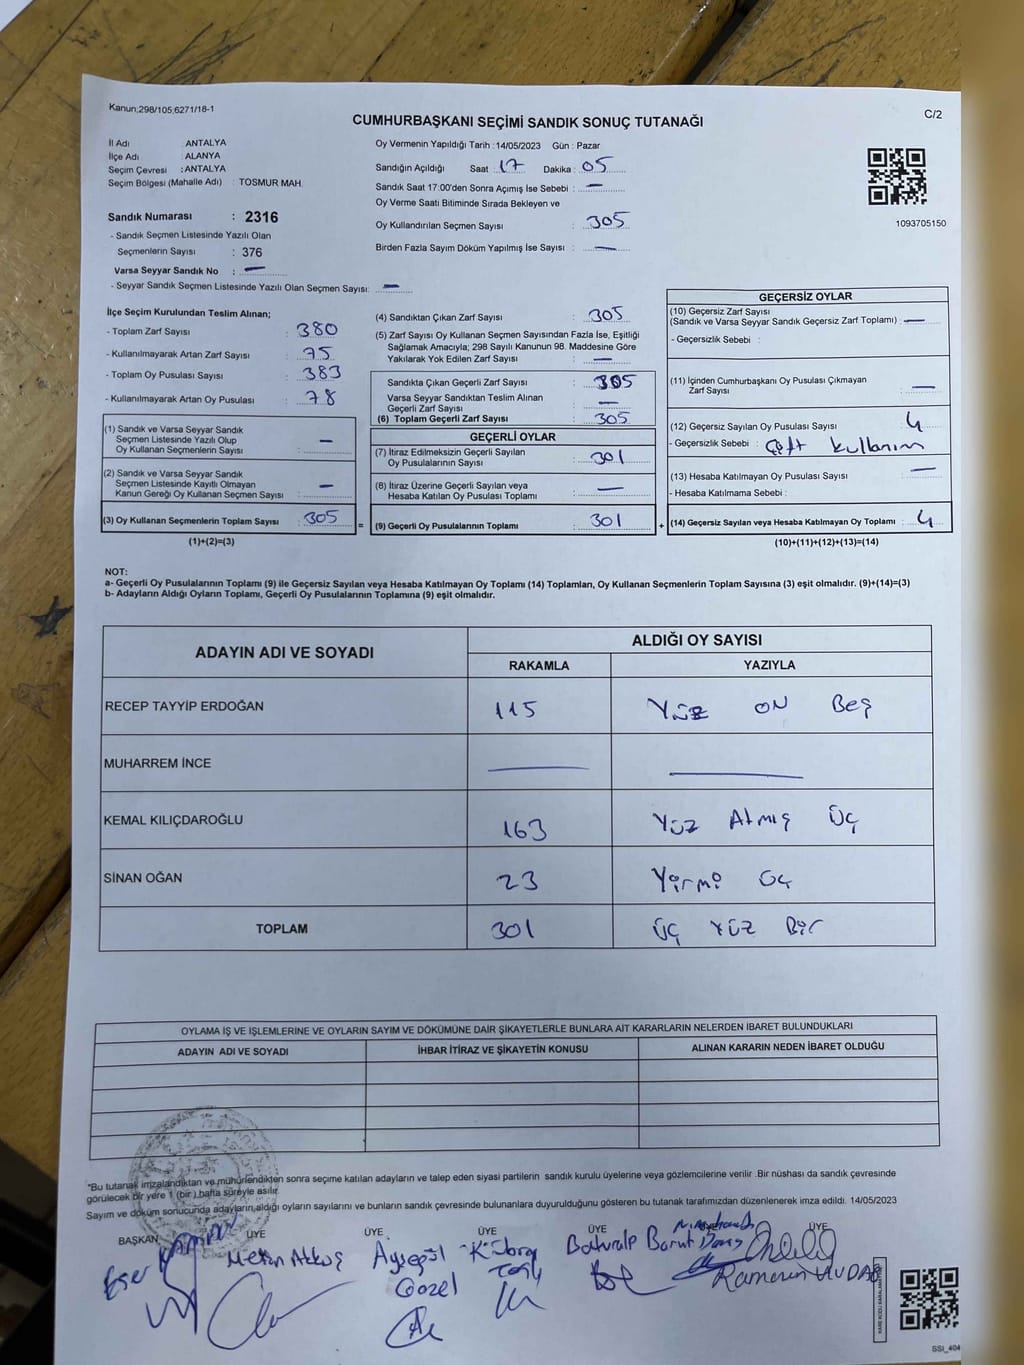 Kanun;298/105;6271/18-1
C/2
CUMHURBAŞKANI SEÇİMİ SANDIK SONUÇ TUTANAĞI
İl Adı : ANTALYA
İlçe Adı : ALANYA
Seçim Çevresi : ANTALYA
Seçim Bölgesi (Mahalle Adı) : TOSMUR MAH.
Sandık Numarası : 2316
- Sandık Seçmen Listesinde Yazılı Olan
Seçmenlerin Sayısı : 376
Varsa Seyyar Sandık No : —
- Seyyar Sandık Seçmen Listesinde Yazılı Olan Seçmen Sayısı: —
Oy Vermenin Yapıldığı Tarih :14/05/2023 Gün : Pazar
Sandığın Açıldığı Saat : 17 Dakika : 05
Sandık Saat 17:00'den Sonra Açımış İse Sebebi : —
Oy Verme Saati Bitiminde Sırada Bekleyen ve
Oy Kullandırılan Seçmen Sayısı : 305
Birden Fazla Sayım Döküm Yapılmış İse Sayısı : —
1093705150
İlçe Seçim Kurulundan Teslim Alınan;
- Toplam Zarf Sayısı : 380
- Kullanılmayarak Artan Zarf Sayısı : 75
- Toplam Oy Pusulası Sayısı : 383
- Kullanılmayarak Artan Oy Pusulası : 78
(1) Sandık ve Varsa Seyyar Sandık
Seçmen Listesinde Yazılı Olup
Oy Kullanan Seçmenlerin Sayısı : —
(2) Sandık ve Varsa Seyyar Sandık
Seçmen Listesinde Kayıtlı Olmayan
Kanun Gereği Oy Kullanan Seçmen Sayısı : —
(3) Oy Kullanan Seçmenlerin Toplam Sayısı : 305 =
(1)+(2)=(3)
(4) Sandıktan Çıkan Zarf Sayısı : 305
(5) Zarf Sayısı Oy Kullanan Seçmen Sayısından Fazla İse, Eşitliği
Sağlamak Amacıyla; 298 Sayılı Kanunun 98. Maddesine Göre
Yakılarak Yok Edilen Zarf Sayısı : —
Sandıkta Çıkan Geçerli Zarf Sayısı : 305
Varsa Seyyar Sandıktan Teslim Alınan
Geçerli Zarf Sayısı : —
(6) Toplam Geçerli Zarf Sayısı : 305
GEÇERLİ OYLAR
(7) İtiraz Edilmeksizin Geçerli Sayılan
Oy Pusulalarının Sayısı : 301
(8) İtiraz Üzerine Geçerli Sayılan veya
Hesaba Katılan Oy Pusulası Toplamı : —
(9) Geçerli Oy Pusulalarının Toplamı : 301 +
GEÇERSİZ OYLAR
(10) Geçersiz Zarf Sayısı
(Sandık ve Varsa Seyyar Sandık Geçersiz Zarf Toplamı) : —
- Geçersizlik Sebebi :
(11) İçinden Cumhurbaşkanı Oy Pusulası Çıkmayan
Zarf Sayısı : —
(12) Geçersiz Sayılan Oy Pusulası Sayısı : 4
- Geçersizlik Sebebi : Çift kullanım
(13) Hesaba Katılmayan Oy Pusulası Sayısı : —
- Hesaba Katılmama Sebebi :
(14) Geçersiz Sayılan veya Hesaba Katılmayan Oy Toplamı : 4
(10)+(11)+(12)+(13)=(14)
NOT:
a- Geçerli Oy Pusulalarının Toplamı (9) ile Geçersiz Sayılan veya Hesaba Katılmayan Oy Toplamı (14) Toplamları, Oy Kullanan Seçmenlerin Toplam Sayısına (3) eşit olmalıdır. (9)+(14)=(3)
b- Adayların Aldığı Oyların Toplamı, Geçerli Oy Pusulalarının Toplamına (9) eşit olmalıdır.
ADAYIN ADI VE SOYADI ALDIĞI OY SAYISI
RAKAMLA YAZIYLA
RECEP TAYYİP ERDOĞAN 115 Yüz ON Beş
MUHARREM İNCE — —
KEMAL KILIÇDAROĞLU 163 Yüz Atmış Üç
SİNAN OĞAN 23 Yirmi Üç
TOPLAM 301 Üç YÜZ Bir
OYLAMA İŞ VE İŞLEMLERİNE VE OYLARIN SAYIM VE DÖKÜMÜNE DAİR ŞİKAYETLERLE BUNLARA AİT KARARLARIN NELERDEN İBARET BULUNDUKLARI
ADAYIN ADI VE SOYADI İHBAR İTİRAZ VE ŞİKAYETİN KONUSU ALINAN KARARIN NEDEN İBARET OLDUĞU
"Bu tutanak imzalandıktan ve mühürlendikten sonra seçime katılan adayların ve talep eden siyasi partilerin sandık kurulu üyelerine veya gözlemcilerine verilir .Bir nüshası da sandık çevresinde
görülecek bir yere 1 (bir ) hafta süreyle asılır.
Sayım ve döküm sonucunda adayların,aldığı oyların sayılarını ve bunların sandık çevresinde bulunanlara duyurulduğunu gösteren bu tutanak tarafımızdan düzenlenerek imza edildi. 14/05/2023
BAŞKAN ÜYE ÜYE ÜYE ÜYE ÜYE
Eser
Metin Akkuş
Ayşegül
Gözel
Kübra
Baturalp Barut
Ramazan ULUDAĞ
SSI_404